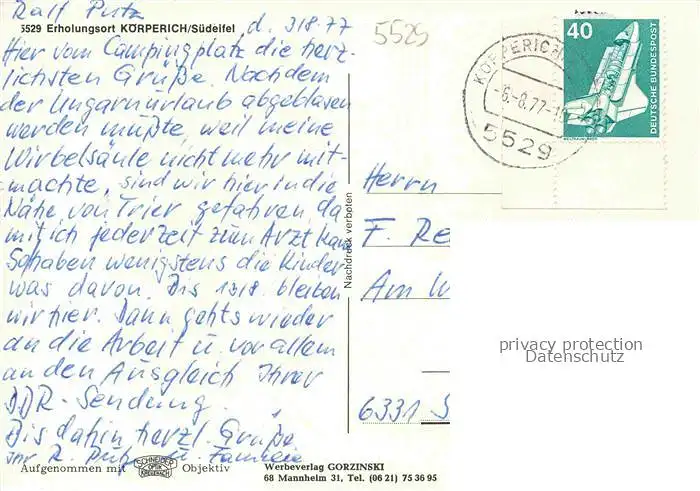 Ralf Putz
5529 Erholungsort KÖRPERICH/Südeifel
d. 3/8.77
Hier vom Campingplatz die herz-
lichsten Grüße. Nachdem
der Ungarnurlaub abgeblasen
werden mußte, weil meine
Wirbelsäule nicht mehr mit-
machte, sind wir hier in die
Nähe von Trier gefahren, da
mit ich jederzeit zum Arzt kann
So haben wenigstens die Kinder
was davon. Bis 13/8 bleiben
wir hier. Dann gehts wieder
an die Arbeit u. vor allem
an den Ausgleich Ihrer
DDR-Sendung.
Bis dahin herzl. Grüße
Ihr R. Putz u. Familie
Aufgenommen mit SCHNEIDER OPTIK KREUZNACH Objektiv
Werbeverlag GORZINSKI
68 Mannheim 31, Tel. (06 21) 75 36 95
Nachdruck verboten
5529
KÖRPERICH
-6.-8.77-
5529
40
DEUTSCHE BUNDESPOST
Herrn
F. Re
Am W
6331 S
privacy protection
Datenschutz